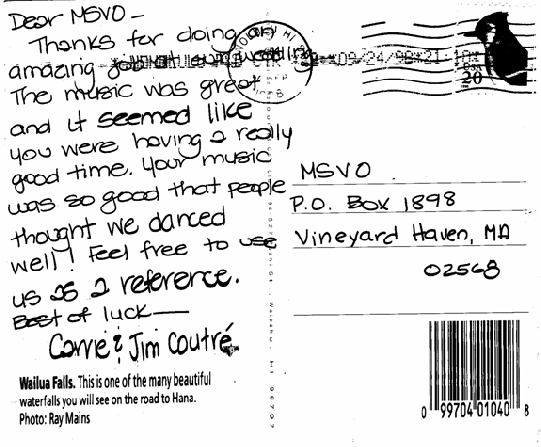 Dear MSVO –
Thanks for doing an
amazing job at our wedding.
The music was great
and it seemed like
you were having a really
good time. Your music
was so good that people
thought we danced
well! Feel free to use
us as a reference.
Best of luck —
& Jim Coutré
Wailua Falls. This is one of the many beautiful
waterfalls you will see on the road to Hana.
Photo: Ray Mains
HI
09/24/98
20
MSVO
P.O. Box 1898
Vineyard Haven, MA
02568
0 99704 01040 8